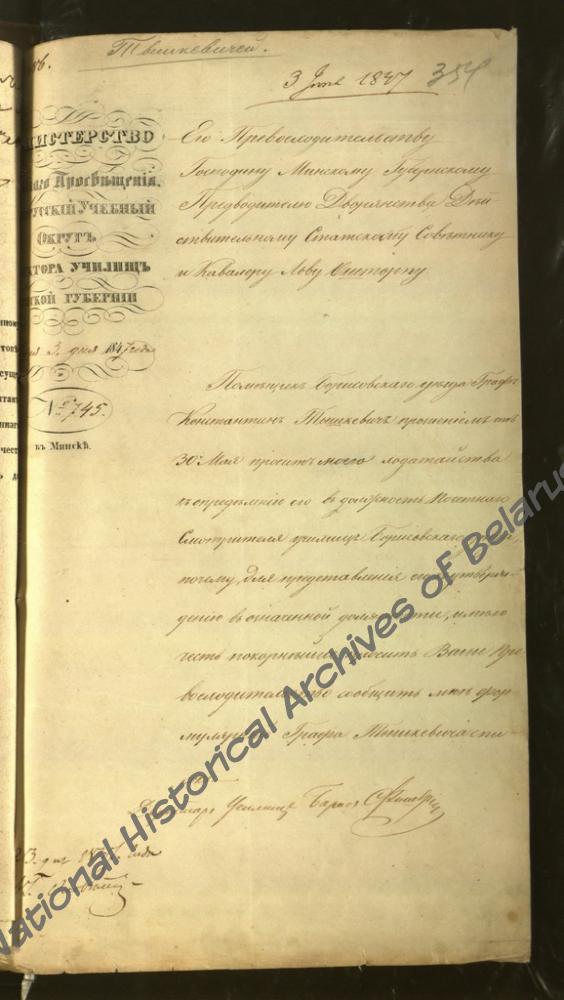 86.
Тышкевичей.
3 June 1847
354
НИСТЕРСТВО
наго Просвѣщенія.
РУССКІЙ УЧЕБНЫЙ
ОКРУГЪ
КТОРА УЧИЛИЩЪ
СКОЙ ГУБЕРНІИ
3. дня 1847 года
№ 745.
въ Минскѣ.
Его Превосходительству
Господину Минскому Губернскому
Предводителю Дворянства Дѣй
ствительному Статскому Совѣтнику
и Кавалеру Льву Ошторпу
Помѣщикъ Борисовскаго уѣзда Графъ
Константинъ Тышкевичъ прошеніемъ отъ
30го Мая проситъ моего ходатайства
къ опредѣленію его въ должность Почетнаго
Смотрителя училищъ Борисовскаго
почему, для представленія его къ утверж
денію въ означенной должности, имѣю
честь покорнѣйше просить Ваше Пре
восходительство сообщить мнѣ фор
мулярный Графа Тышкевича спи
сокъ.
Училищъ Баронъ
23. дня 1847 года
National Historical Archives of Belarus